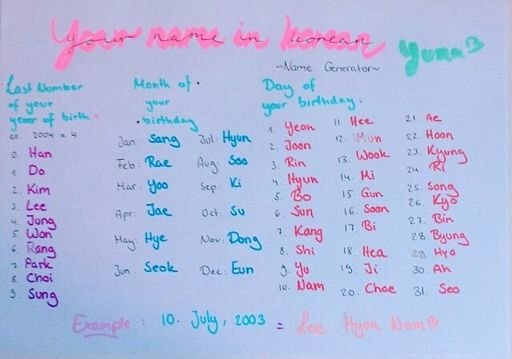 your name in korean
Yuna
~Name Generator~
Last Number
of your
year of birth.
ex. 2004 = 4
0. Han
1. Do
2. Kim
3. Lee
4. Jung
5. Won
6. Rang
7. Park
8. Choi
9. Sung
Month of
your
birthday
Jan: Sang
Feb: Rae
Mar: Yoo
Apr: Jae
May: Hye
Jun: Seok
Jul: Hyun
Aug: Soo
Sep: Ki
Oct: Su
Nov: Dong
Dec: Eun
Day of
your birthday:
1. Yeon
2. Joon
3. Rin
4. Hyun
5. Bo
6. Sun
7. Kang
8. Shi
9. Yu
10. Nam
11. Hee
12. Mun
13. Wook
14. Mi
15. Gun
16. Soon
17. Bi
18. Hea
19. Ji
20. Chae
21. Ae
22. Hoon
23. Kyung
24. Ri
25. Song
26. Kyo
27. Bin
28. Byung
29. Hyo
30. Ah
31. Seo
Example: 10. July, 2003 = Lee Hyun Nam